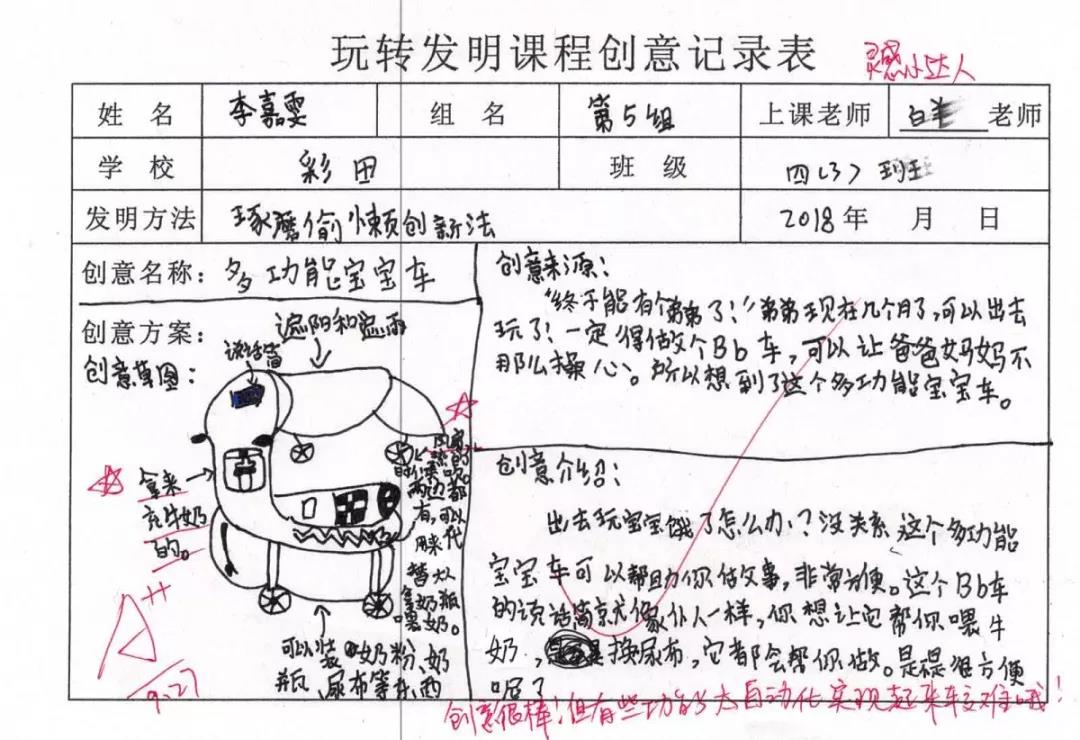 玩转发明课程创意记录表
灵感小达人
姓 名 李嘉雯 组 名 第5组 上课老师 白羊 老师
学 校 彩田 班 级 四(3)班
发明方法 琢磨偷懒创新法 2018年 月 日
创意名称：多功能宝宝车
创意方案：
创意草图：
遮阳和遮雨
说话筒
拿来
充牛奶
的。
两边都
有，可以
用来代
替大人
拿奶瓶
喂奶。
可以装奶粉、奶
瓶、尿布等东西
A++
9.27
创意来源：
“终于能有个弟弟了！”弟弟现在几个月了，可以出去
玩了！一定得做个Bb车，可以让爸爸妈妈不
那么操心。所以想到了这个多功能宝宝车。
创意介绍：
出去玩宝宝饿了怎么办？没关系这个多功能
宝宝车可以帮助你做事，非常方便。这个Bb车
的说话筒就像仆人一样，你想让它帮你喂牛
奶，换尿布，它都会帮你做。是不是很方便
呢？
创意很棒！但有些功能太自动化实现起来较难哦！